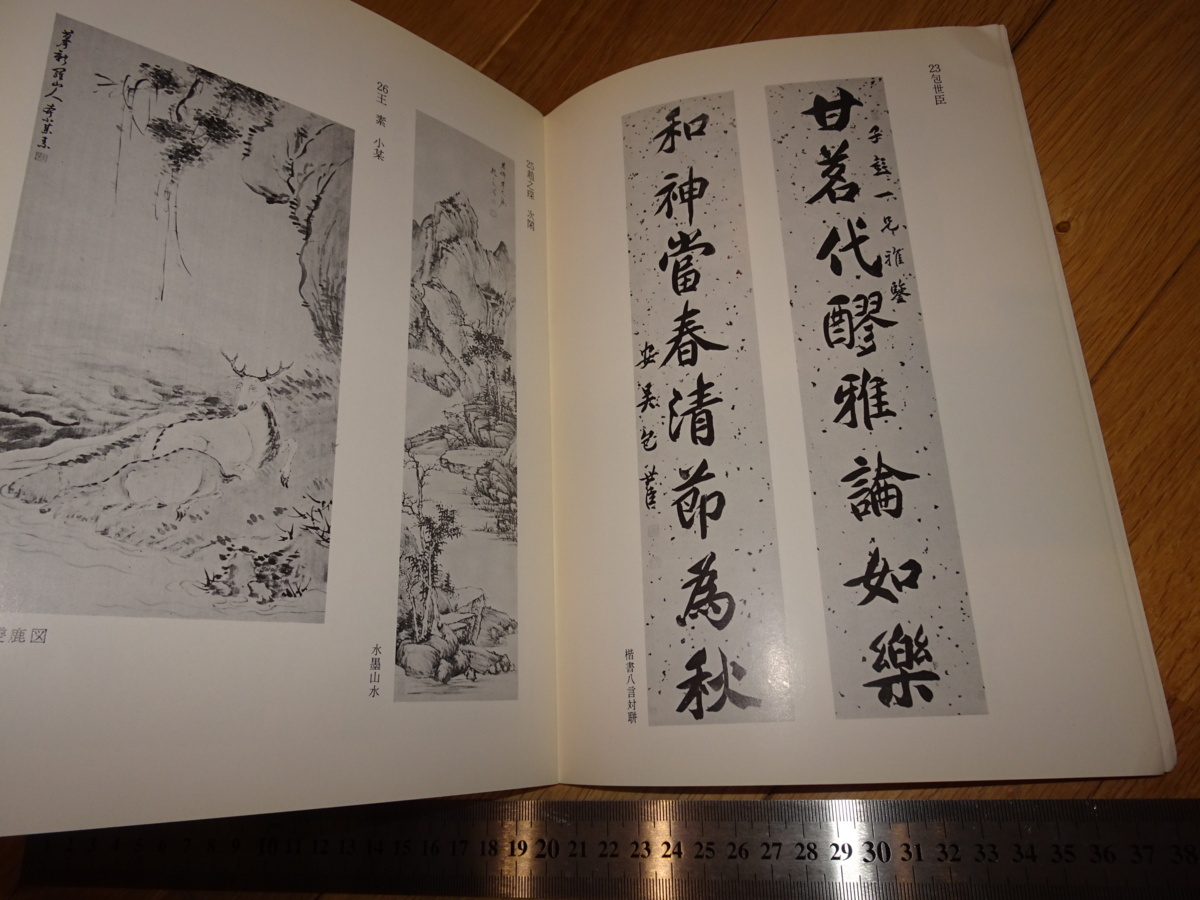 23 包世臣
甘茗代醪雅論如樂
子彭一兄雅鑒
和神當春清節為秋
安吳包世臣
楷書八言対聯
25 趙之琛 次閑
水墨山水
26 王 素 小某
鹿図
15 16 17 18 19 20 21 22 23 24 25 26 27 28 29 30 31 32 33 34 35 36 37 38